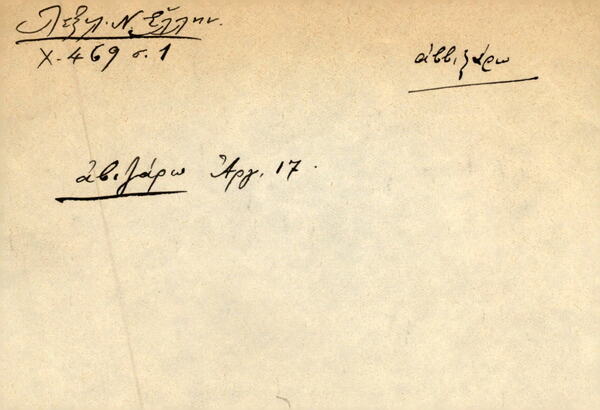 Λεξιλ. Ν. Ἑλλην.
Χ. 469 σ. 1
ἀββιζάρω
ἀβιζάρω Ἀργ. 17.